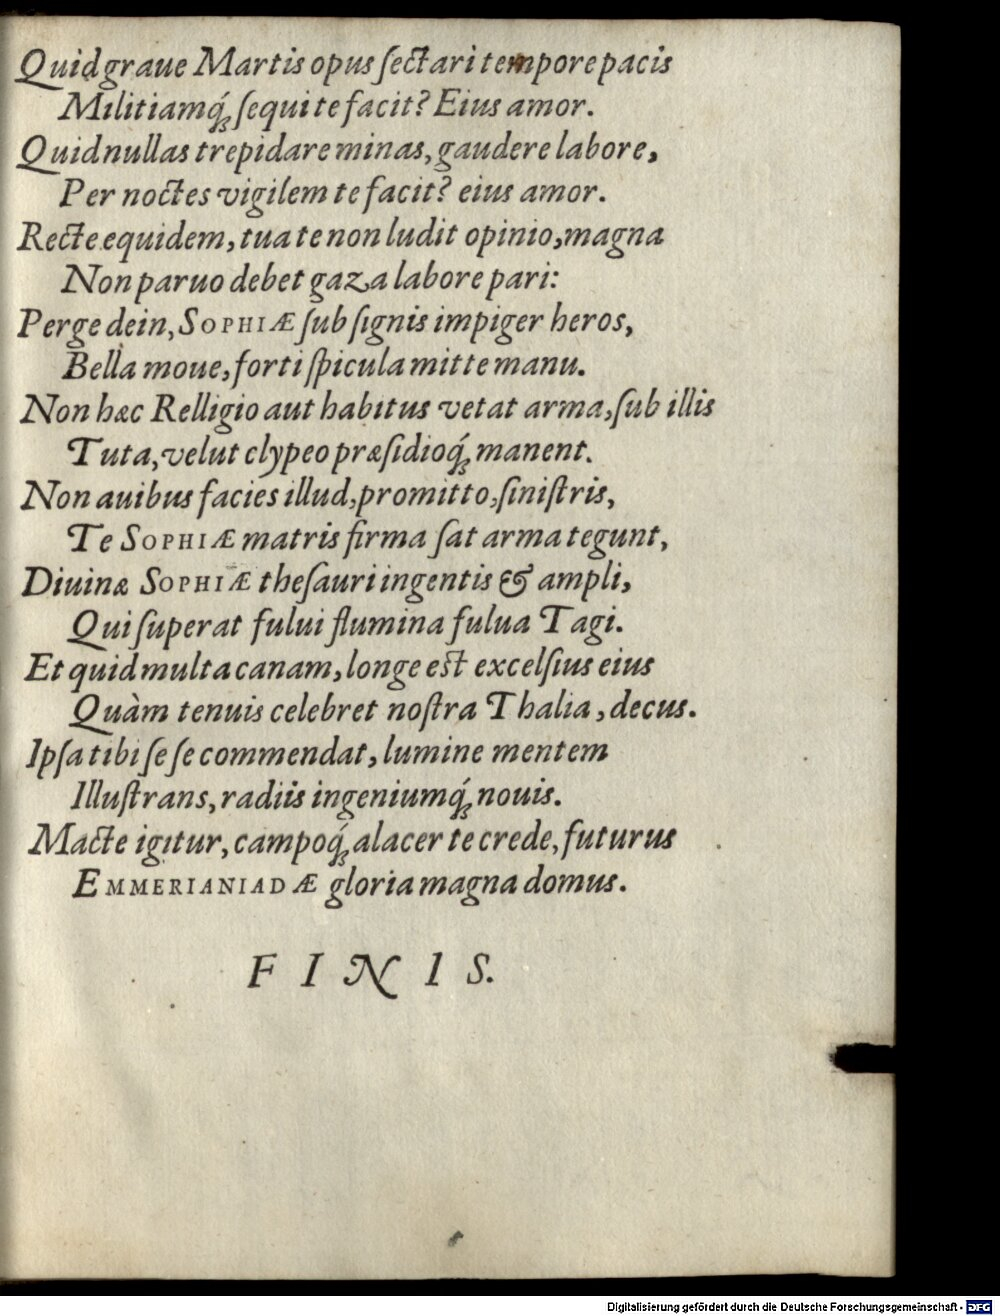 Quid graue Martis opus ſectari tempore pacis
Militiamq́; ſequi te facit? Eius amor.
Quid nullas trepidare minas, gaudere labore,
Per noctes vigilem te facit? eius amor.
Recte equidem, tua te non ludit opinio, magna
Non paruo debet gaza labore pari:
Perge dein, SOPHIÆ ſub ſignis impiger heros,
Bella moue, forti ſpicula mitte manu.
Non hæc Relligio aut habitus vetat arma, ſub illis
Tuta, velut clypeo præſidioq́; manent.
Non auibus facies illud, promitto, ſiniſtris,
Te SOPHIÆ matris firma ſat arma tegunt,
Diuinæ SOPHIÆ theſauri ingentis & ampli,
Qui ſuperat fului flumina fulua Tagi.
Et quid multa canam, longe est excelſius eius
Quàm tenuis celebret noſtra Thalia, decus.
Ipſa tibi ſe ſe commendat, lumine mentem
Illuſtrans, radiis ingeniumq́; nouis.
Macte igitur, campoq́; alacer te crede, futurus
EMMERIANIADÆ gloria magna domus.
FINIS.
Digitalisierung gefördert durch die Deutsche Forschungsgemeinschaft - DFG